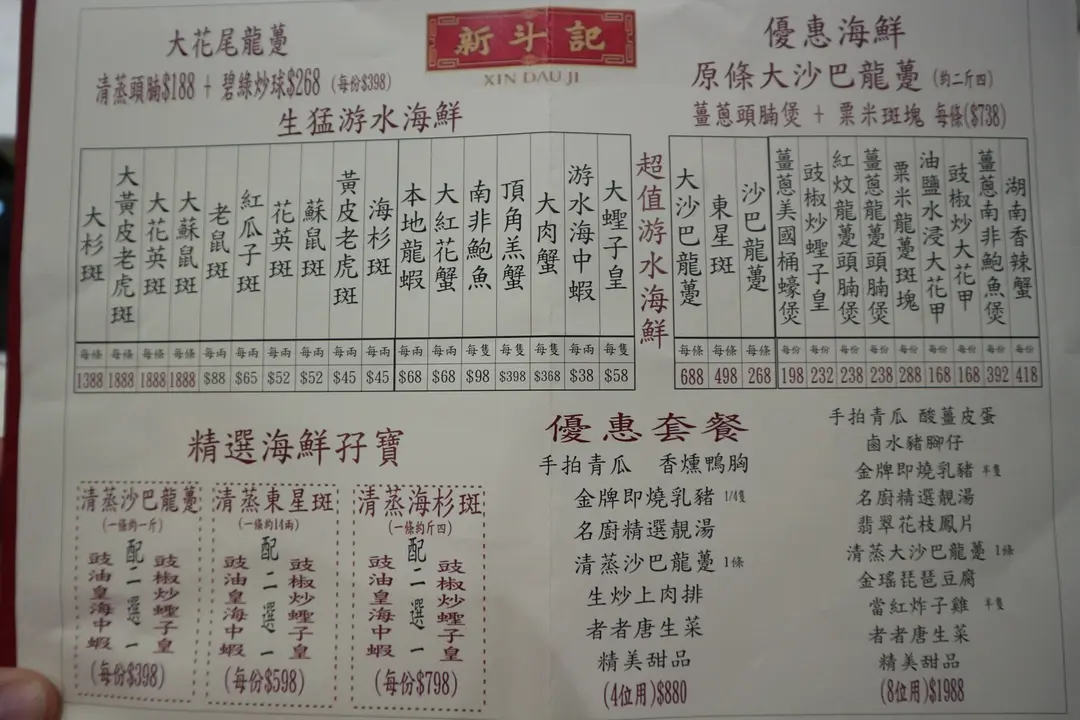 新斗記
XIN DAU JI
大花尾龍躉
清蒸頭腩$188 + 碧綠炒球$268 (每份$398)
生猛游水海鮮
大杉斑 每條 1388
大黃皮老虎斑 每條 1888
大花英斑 每條 1888
大蘇鼠斑 每條 1888
老鼠斑 每兩 $88
紅瓜子斑 每兩 $65
花英斑 每兩 $52
蘇鼠斑 每兩 $52
黃皮老虎斑 每兩 $45
海杉斑 每兩 $45
本地龍蝦 每兩 $68
大紅花蟹 每兩 $68
南非鮑魚 每隻 $98
頂角羔蟹 每隻 $398
大肉蟹 每隻 $368
游水海中蝦 每兩 $38
大蟶子皇 每隻 $58
超值游水海鮮
優惠海鮮
原條大沙巴龍躉 (約二斤四)
薑蔥頭腩煲 + 粟米斑塊 每條($738)
大沙巴龍躉 每條 688
東星斑 每條 498
沙巴龍躉 每條 268
薑蔥美國桶蠔煲 每份 198
豉椒炒蟶子皇 每份 232
紅炆龍躉頭腩煲 每份 238
薑蔥龍躉頭腩煲 每份 238
粟米龍躉斑塊 每份 288
油鹽水浸大花甲 每份 168
豉椒炒大花甲 每份 168
薑蔥南非鮑魚煲 每份 392
湖南香辣蟹 每份 418
精選海鮮孖寶
清蒸沙巴龍躉
(一條約一斤)
配二選一
豉油皇海中蝦
豉椒炒蟶子皇
(每份$398)
清蒸東星斑
(一條約14兩)
配二選一
豉油皇海中蝦
豉椒炒蟶子皇
(每份$598)
清蒸海杉斑
(一條約斤四)
配二選一
豉油皇海中蝦
豉椒炒蟶子皇
(每份$798)
優惠套餐
手拍青瓜 香燻鴨胸
金牌即燒乳豬 1/4隻
名廚精選靚湯
清蒸沙巴龍躉 1條
生炒上肉排
者者唐生菜
精美甜品
(4位用)$880
手拍青瓜 酸薑皮蛋
鹵水豬腳仔
金牌即燒乳豬 半隻
名廚精選靚湯
翡翠花枝鳳片
清蒸大沙巴龍躉 1條
金瑤琵琶豆腐
當紅炸子雞 半隻
者者唐生菜
精美甜品
(8位用)$1988